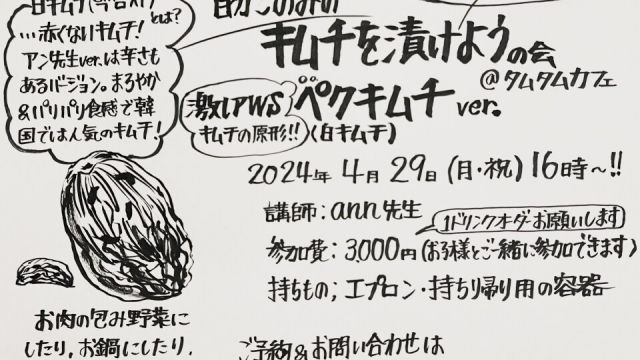 白キムチ
とは?
...赤くないキムチ!
アン先生ver.は辛さも
あるバージョン。まろやか
&パリパリ食感で韓
国では人気のキムチ!
キムチを漬けようの会
@タムタムカフェ
激しAWS ペクキムチ ver.
キムチの原形!! (白キムチ)
2024年 4月 29日 (月・祝) 16時~!!
講師:ann先生
1ドリンクオーダーお願いします
参加費:3,000円(お子様とご一緒に参加できます)
持ちもの;エプロン・持ち帰り用の容器
お肉の包み野菜に
したり,お鍋にしたり,
ご予約&お問い合わせは